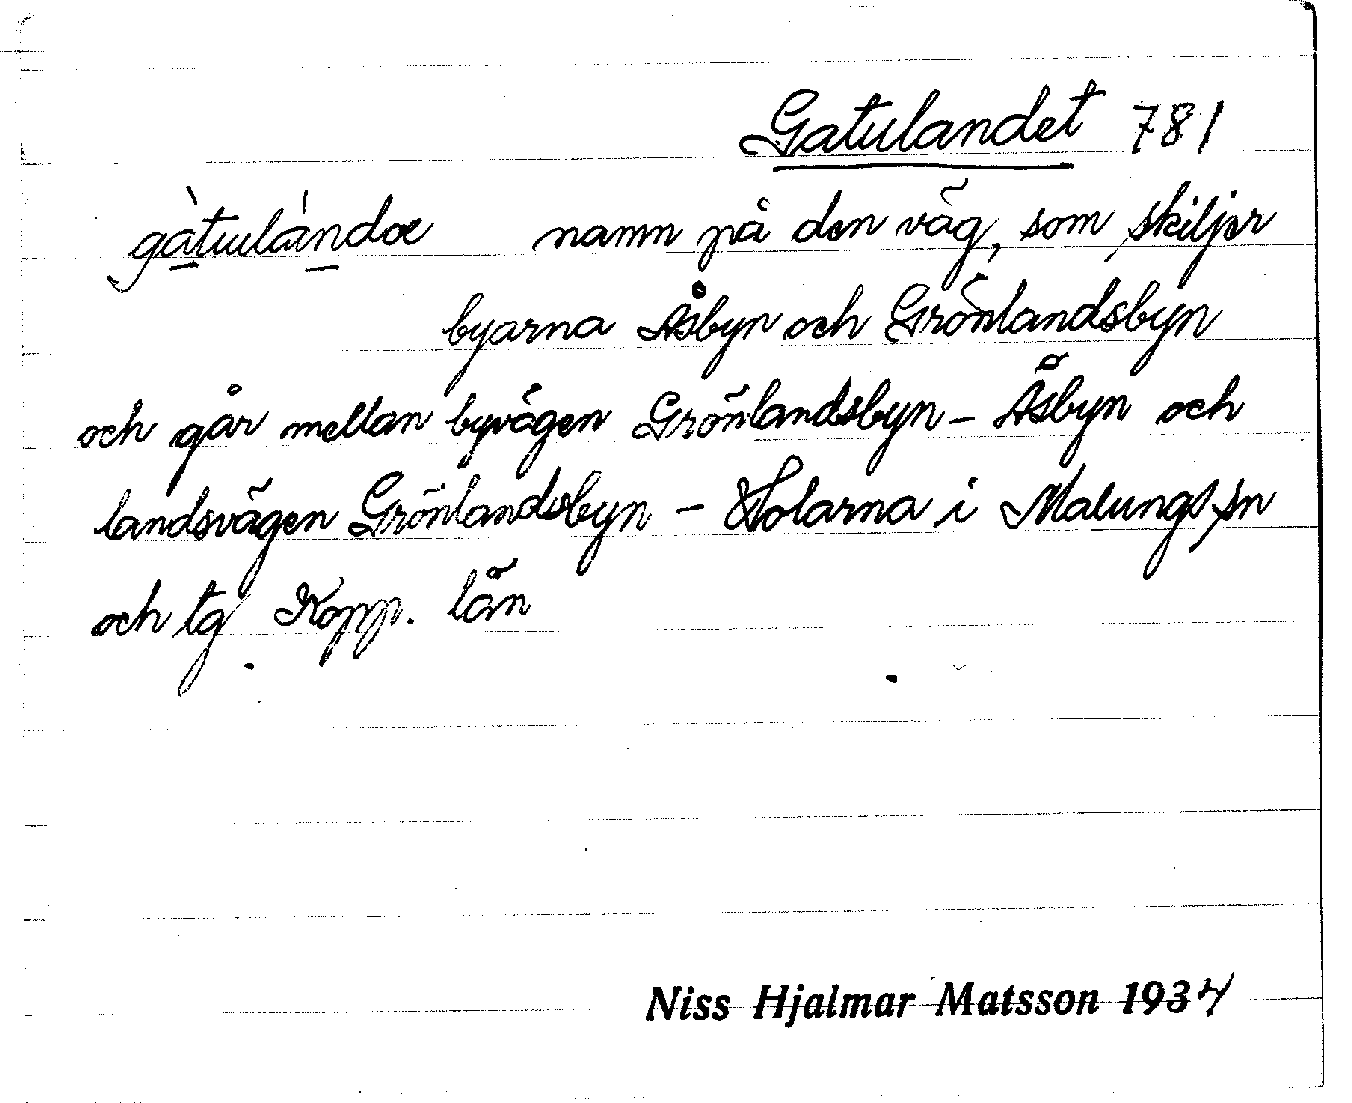 Gatulandet 781
gàtulándæ namn på den väg, som skiljer
byarna Åsbyn och Grönlandsbyn
och går mellan byvägen Grönlandsbyn – Åsbyn och
landsvägen Grönlandsbyn – Holarna i Malungs sn
och tg Kopp. län
Niss Hjalmar Matsson 1934